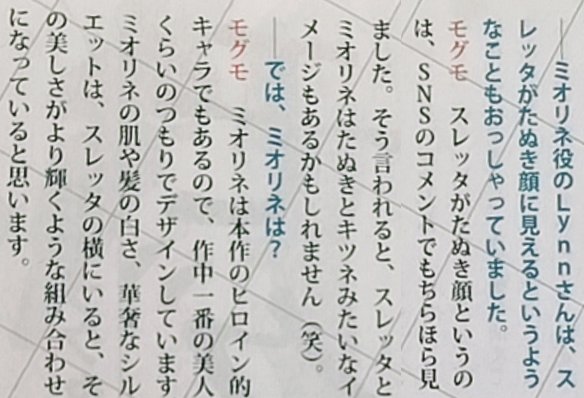 ――ミオリネ役のLynnさんは、ス
レッタがたぬき顔に見えるというよう
なこともおっしゃっていました。
モグモ　スレッタがたぬき顔というの
は、SNSのコメントでもちらほら見
ました。そう言われると、スレッタと
ミオリネはたぬきとキツネみたいなイ
メージもあるかもしれません（笑）。
――では、ミオリネは？
モグモ　ミオリネは本作のヒロイン的
キャラでもあるので、作中一番の美人
くらいのつもりでデザインしています
ミオリネの肌や髪の白さ、華奢なシル
エットは、スレッタの横にいると、そ
の美しさがより輝くような組み合わせ
になっていると思います。